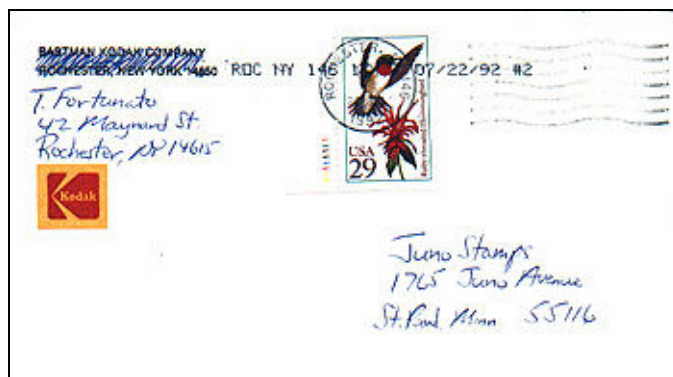 EASTMAN KODAK COMPANY
ROCHESTER, NEW YORK 14650
ROC NY 146 07/22/92 #2
T. Fortunato
42 Maynard St.
Rochester, NY 14615
Kodak
ROCHESTER
USA
29
Ruby-throated Hummingbird
Juno Stamps
1765 Juno Avenue
St. Paul, Minn 55116